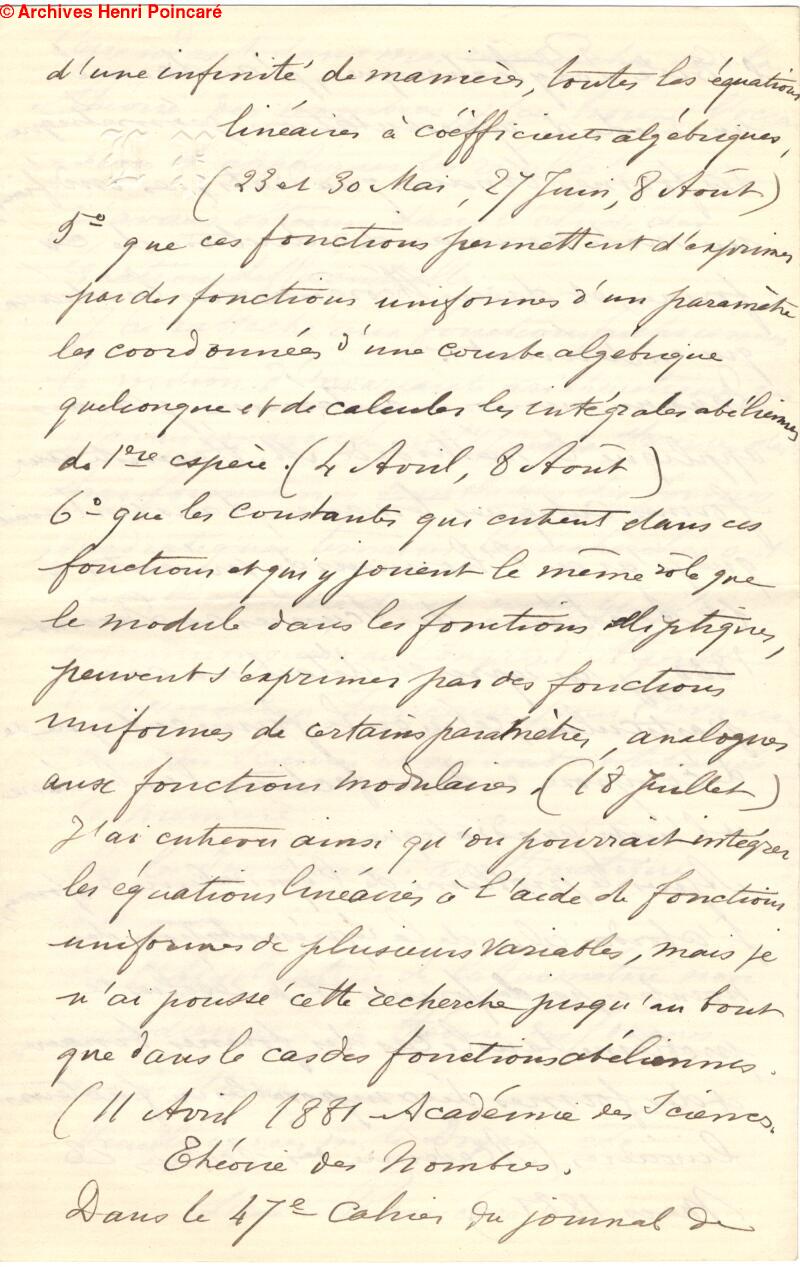 © Archives Henri Poincaré
d'une infinité de manières, toutes les équations
linéaires à coëfficients algébriques,
(23 et 30 Mai, 27 Juin, 8 Août)
5º que ces fonctions permettent d'exprimer
par des fonctions uniformes d'un paramètre
les coordonnées d'une courbe algébrique
quelconque et de calculer les intégrales abéliennes
de 1ere espèce. (4 Avril, 8 Août)
6º que les constantes qui entrent dans ces
fonctions et qui y jouent le même rôle que
le module dans les fonctions elliptiques,
peuvent s'exprimer par des fonctions
uniformes de certains paramètres, analogues
aux fonctions modulaires. (18 Juillet)
J'ai entrevu ainsi qu'on pourrait intégrer
les équations linéaires à l'aide de fonctions
uniformes de plusieurs variables, mais je
n'ai poussé cette recherche jusqu'au bout
que dans le cas des fonctions abéliennes.
(11 Avril 1881 Académie des Sciences.
Théorie des Nombres.
Dans le 47e Cahier du journal de